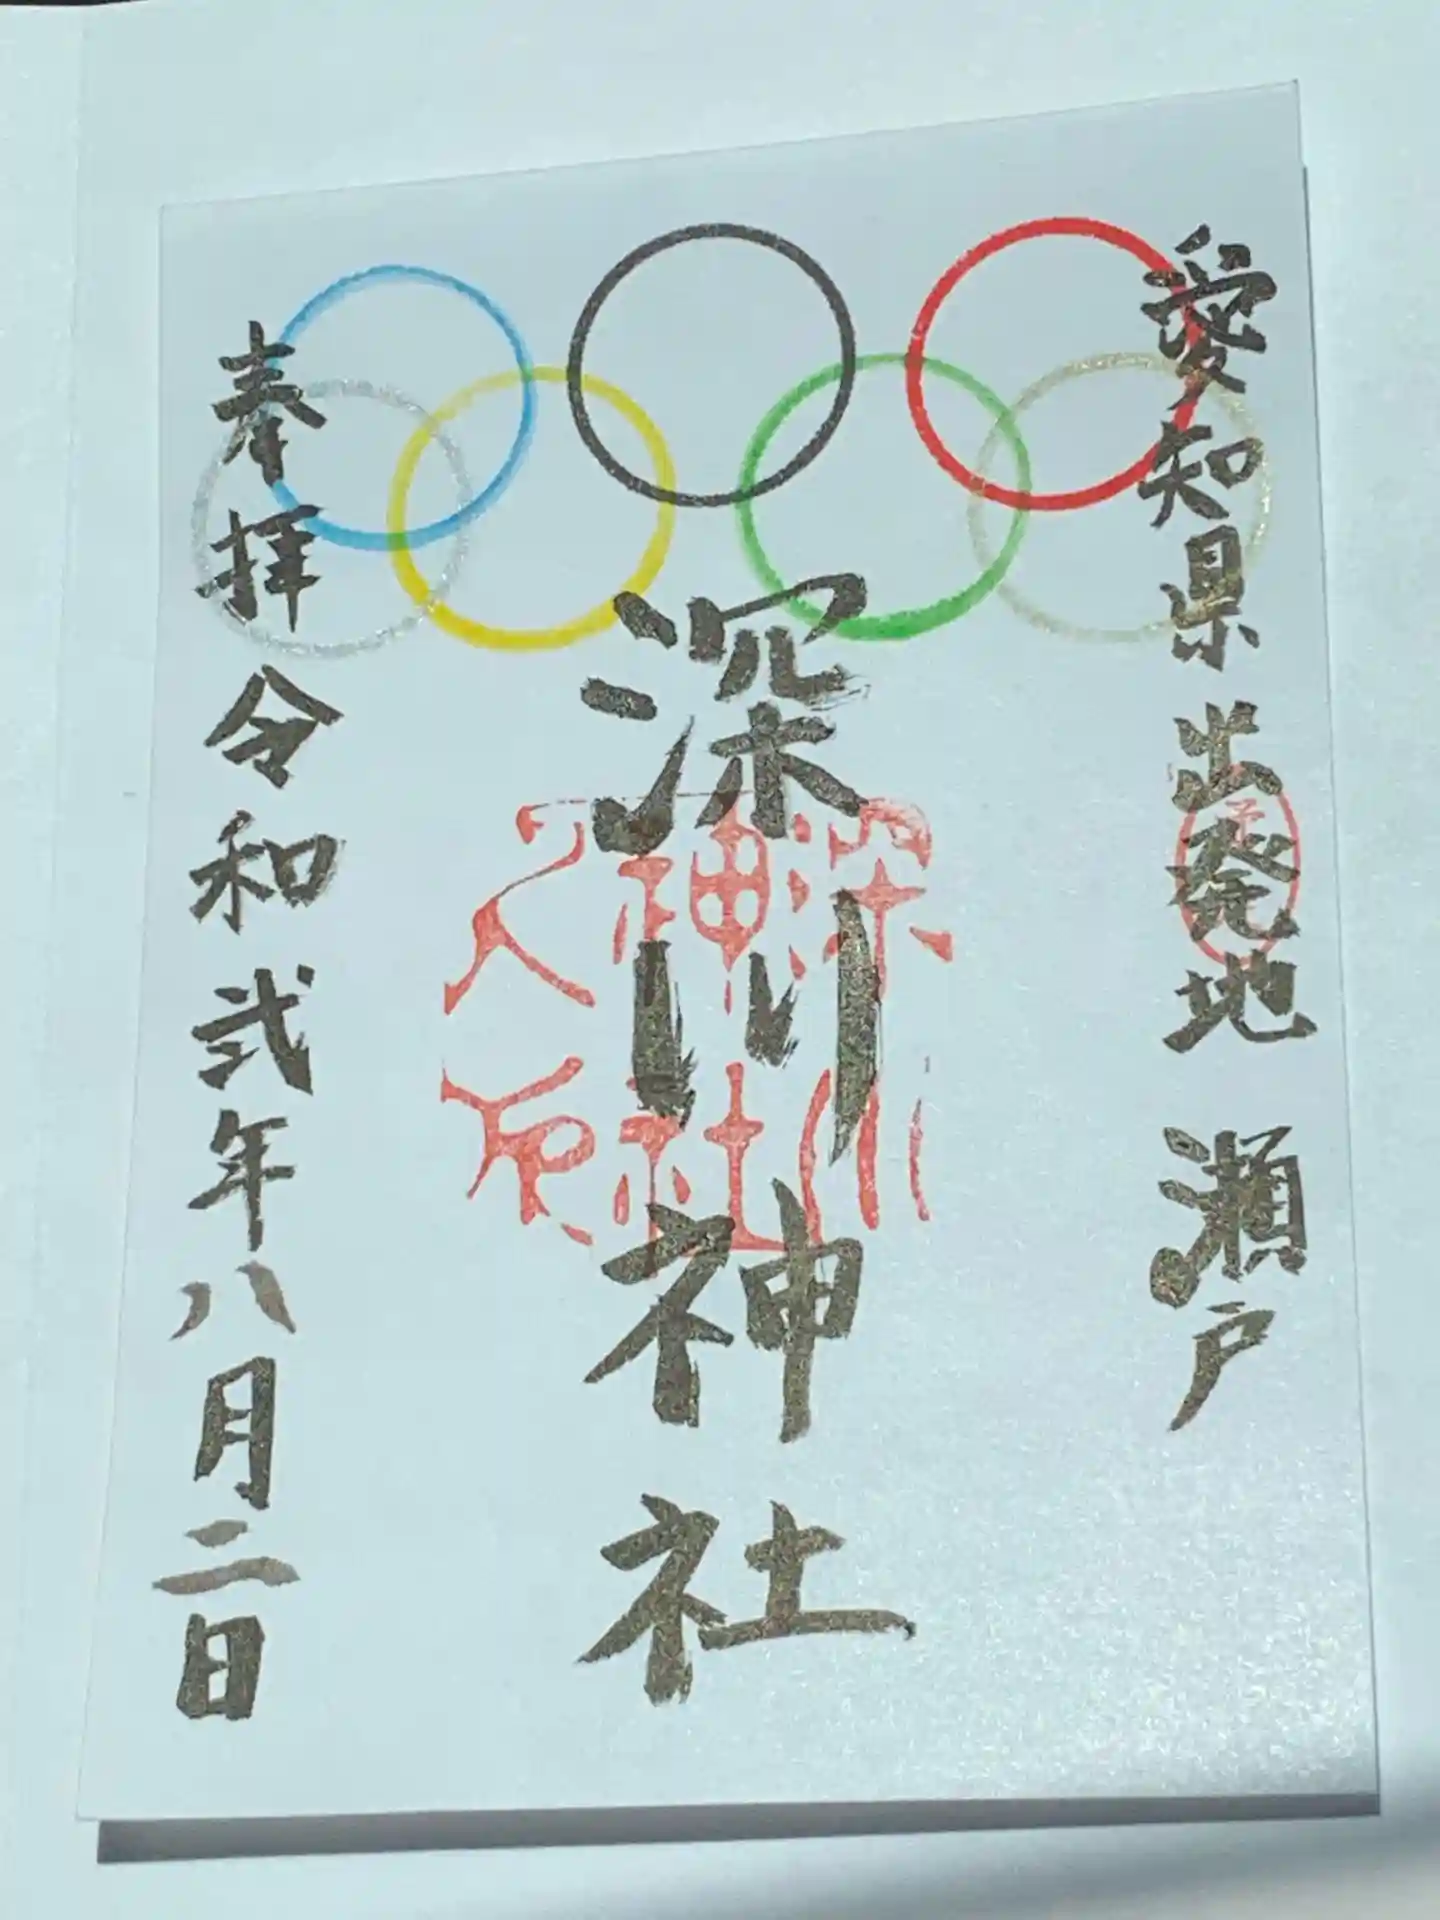 愛知県 出発地 瀬戸
深川神社
奉拝 令和弐年八月二日
深川
神社